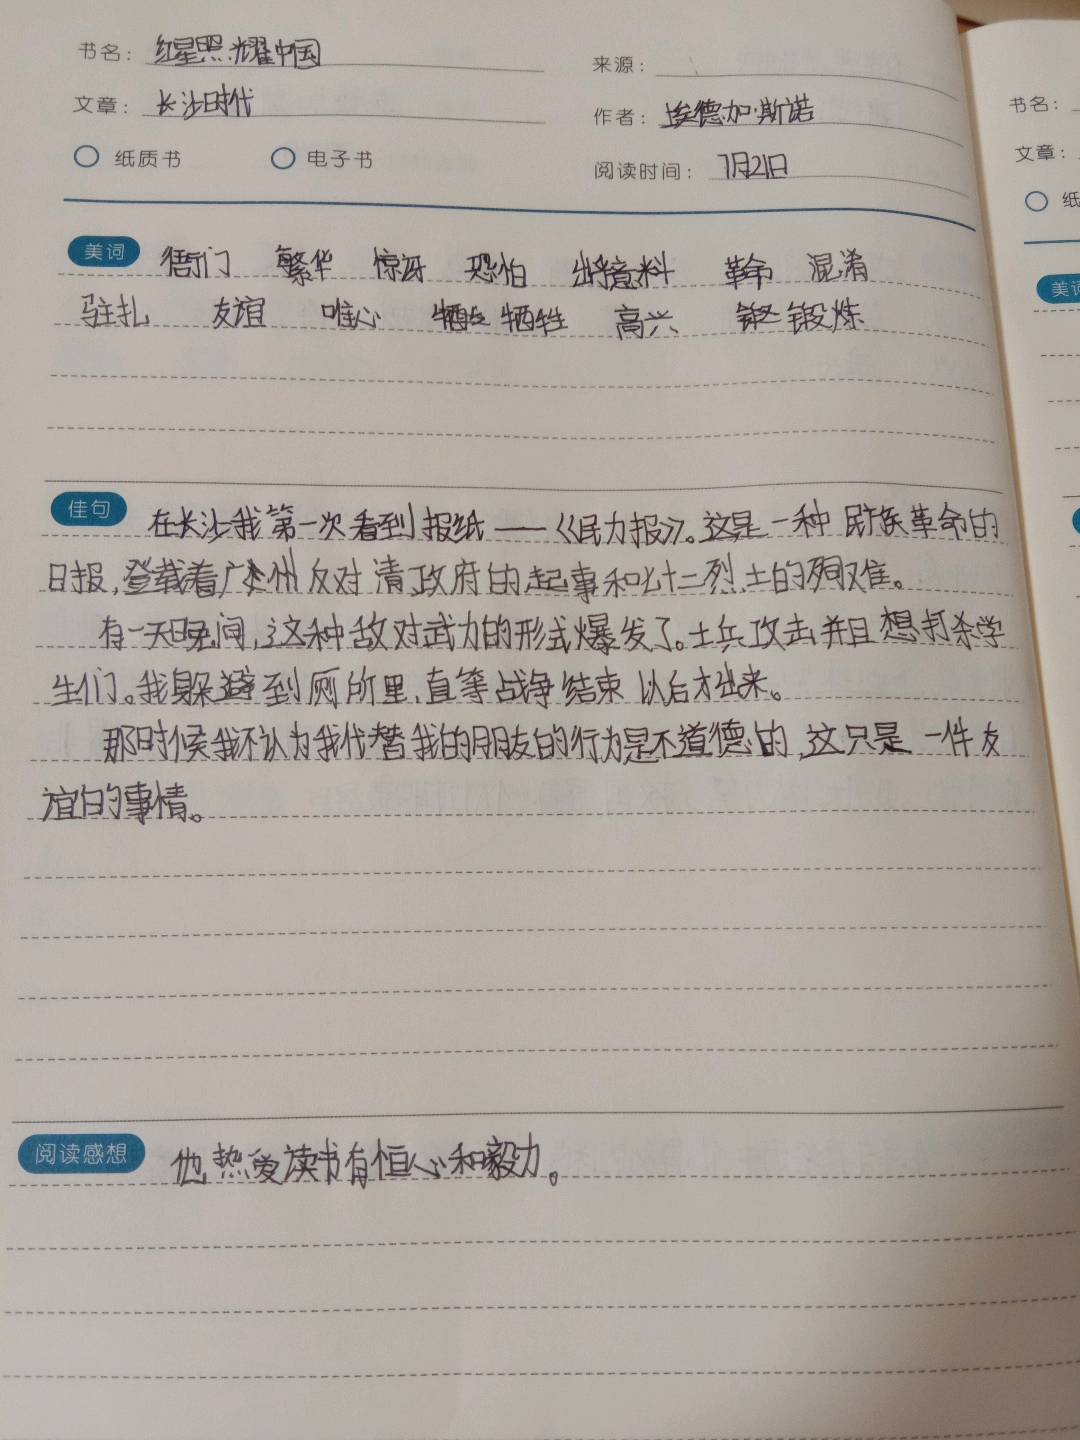 书名： 红星照耀中国
来源：
文章： 长沙时代
作者： 埃德加·斯诺
纸质书 电子书
阅读时间： 7月21日
美词 衙门 繁华 惊讶 恐怕 出乎意料 革命 混淆
驻扎 友谊 唯心 牺牲 高兴 锻炼
佳句 在长沙我第一次看到报纸——《民力报》。这是一种民族革命的
日报，登载着广州反对清政府的起事和七十二烈士的殉难。
有一天晚间，这种敌对武力的形式爆发了。士兵攻击并且想打杀学
生们。我躲避到厕所里，直等战争结束以后才出来。
那时候我不认为我代替我的朋友的行为是不道德的，这只是一件友
谊的事情。
阅读感想 他热爱读书有恒心和毅力。
书名：
文章：
纸
美词